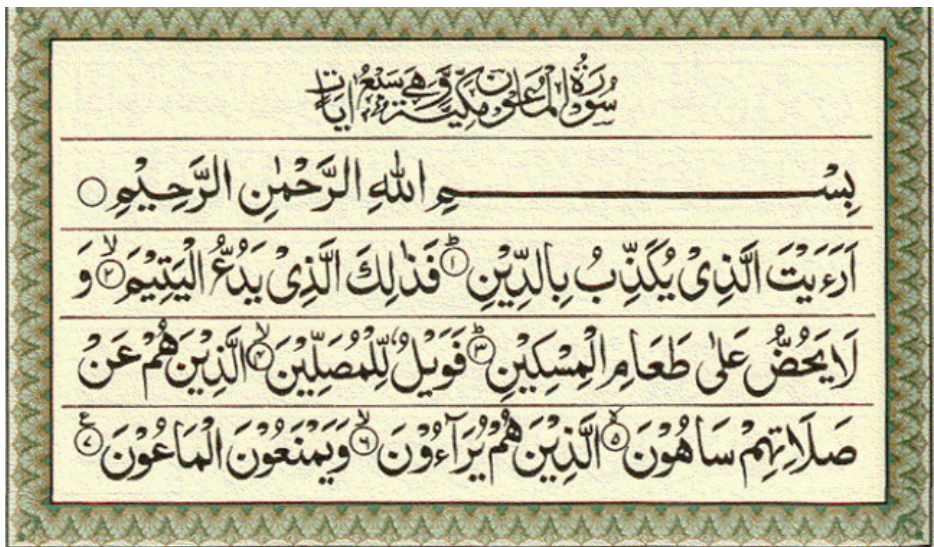 سُوْرَةُ الْمَاعُوْنِ مَكِّيَّةٌ وَّهِيَ سَبْعُ اٰيَاتٍ
بِسْــــــــــــــــــمِ اللّٰهِ الرَّحْمٰنِ الرَّحِيْمِ ○
اَرَءَيْتَ الَّذِىْ يُكَذِّبُ بِالدِّيْنِ ؕ۱ فَذٰلِكَ الَّذِىْ يَدُعُّ الْيَتِيْمَ ۙ۲ وَ
لَا يَحُضُّ عَلٰى طَعَامِ الْمِسْكِيْنِ ؕ۳ فَوَيْلٌ لِّلْمُصَلِّيْنَ ۙ۴ الَّذِيْنَ هُمْ عَنْ
صَلَاتِهِمْ سَاهُوْنَ ۙ۵ الَّذِيْنَ هُمْ يُرَآءُوْنَ ۙ۶ وَيَمْنَعُوْنَ الْمَاعُوْنَ ۷ع